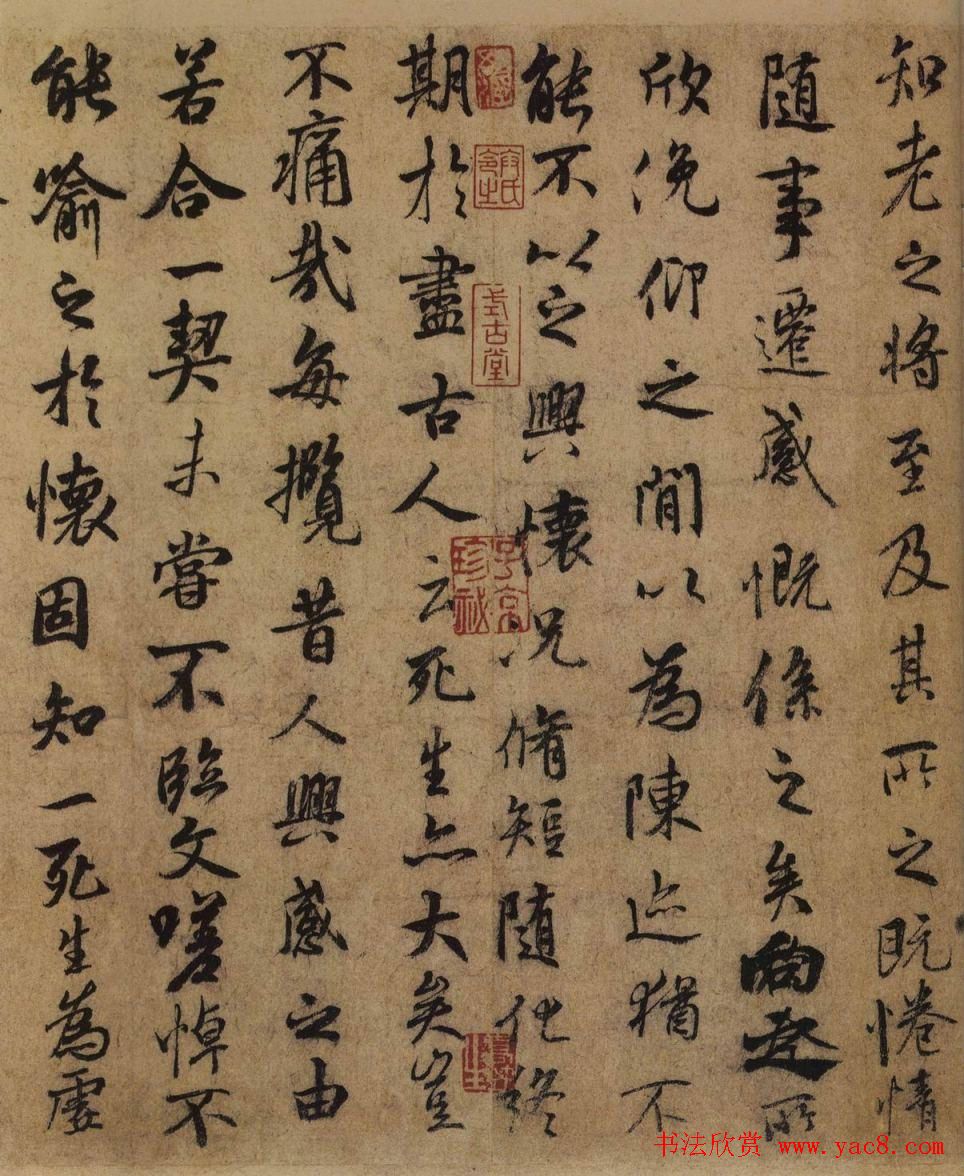 知老之將至及其所之既惓情
隨事遷感慨係之矣向之所
欣俛仰之閒以為陳迹猶不
能不以之興懷況脩短隨化終
期於盡古人云死生亦大矣豈
不痛哉每攬昔人興感之由
若合一契未嘗不臨文嗟悼不
能喻之於懷固知一死生為虛
式古堂
子京
珍秘
书法欣赏 www.yac8.com